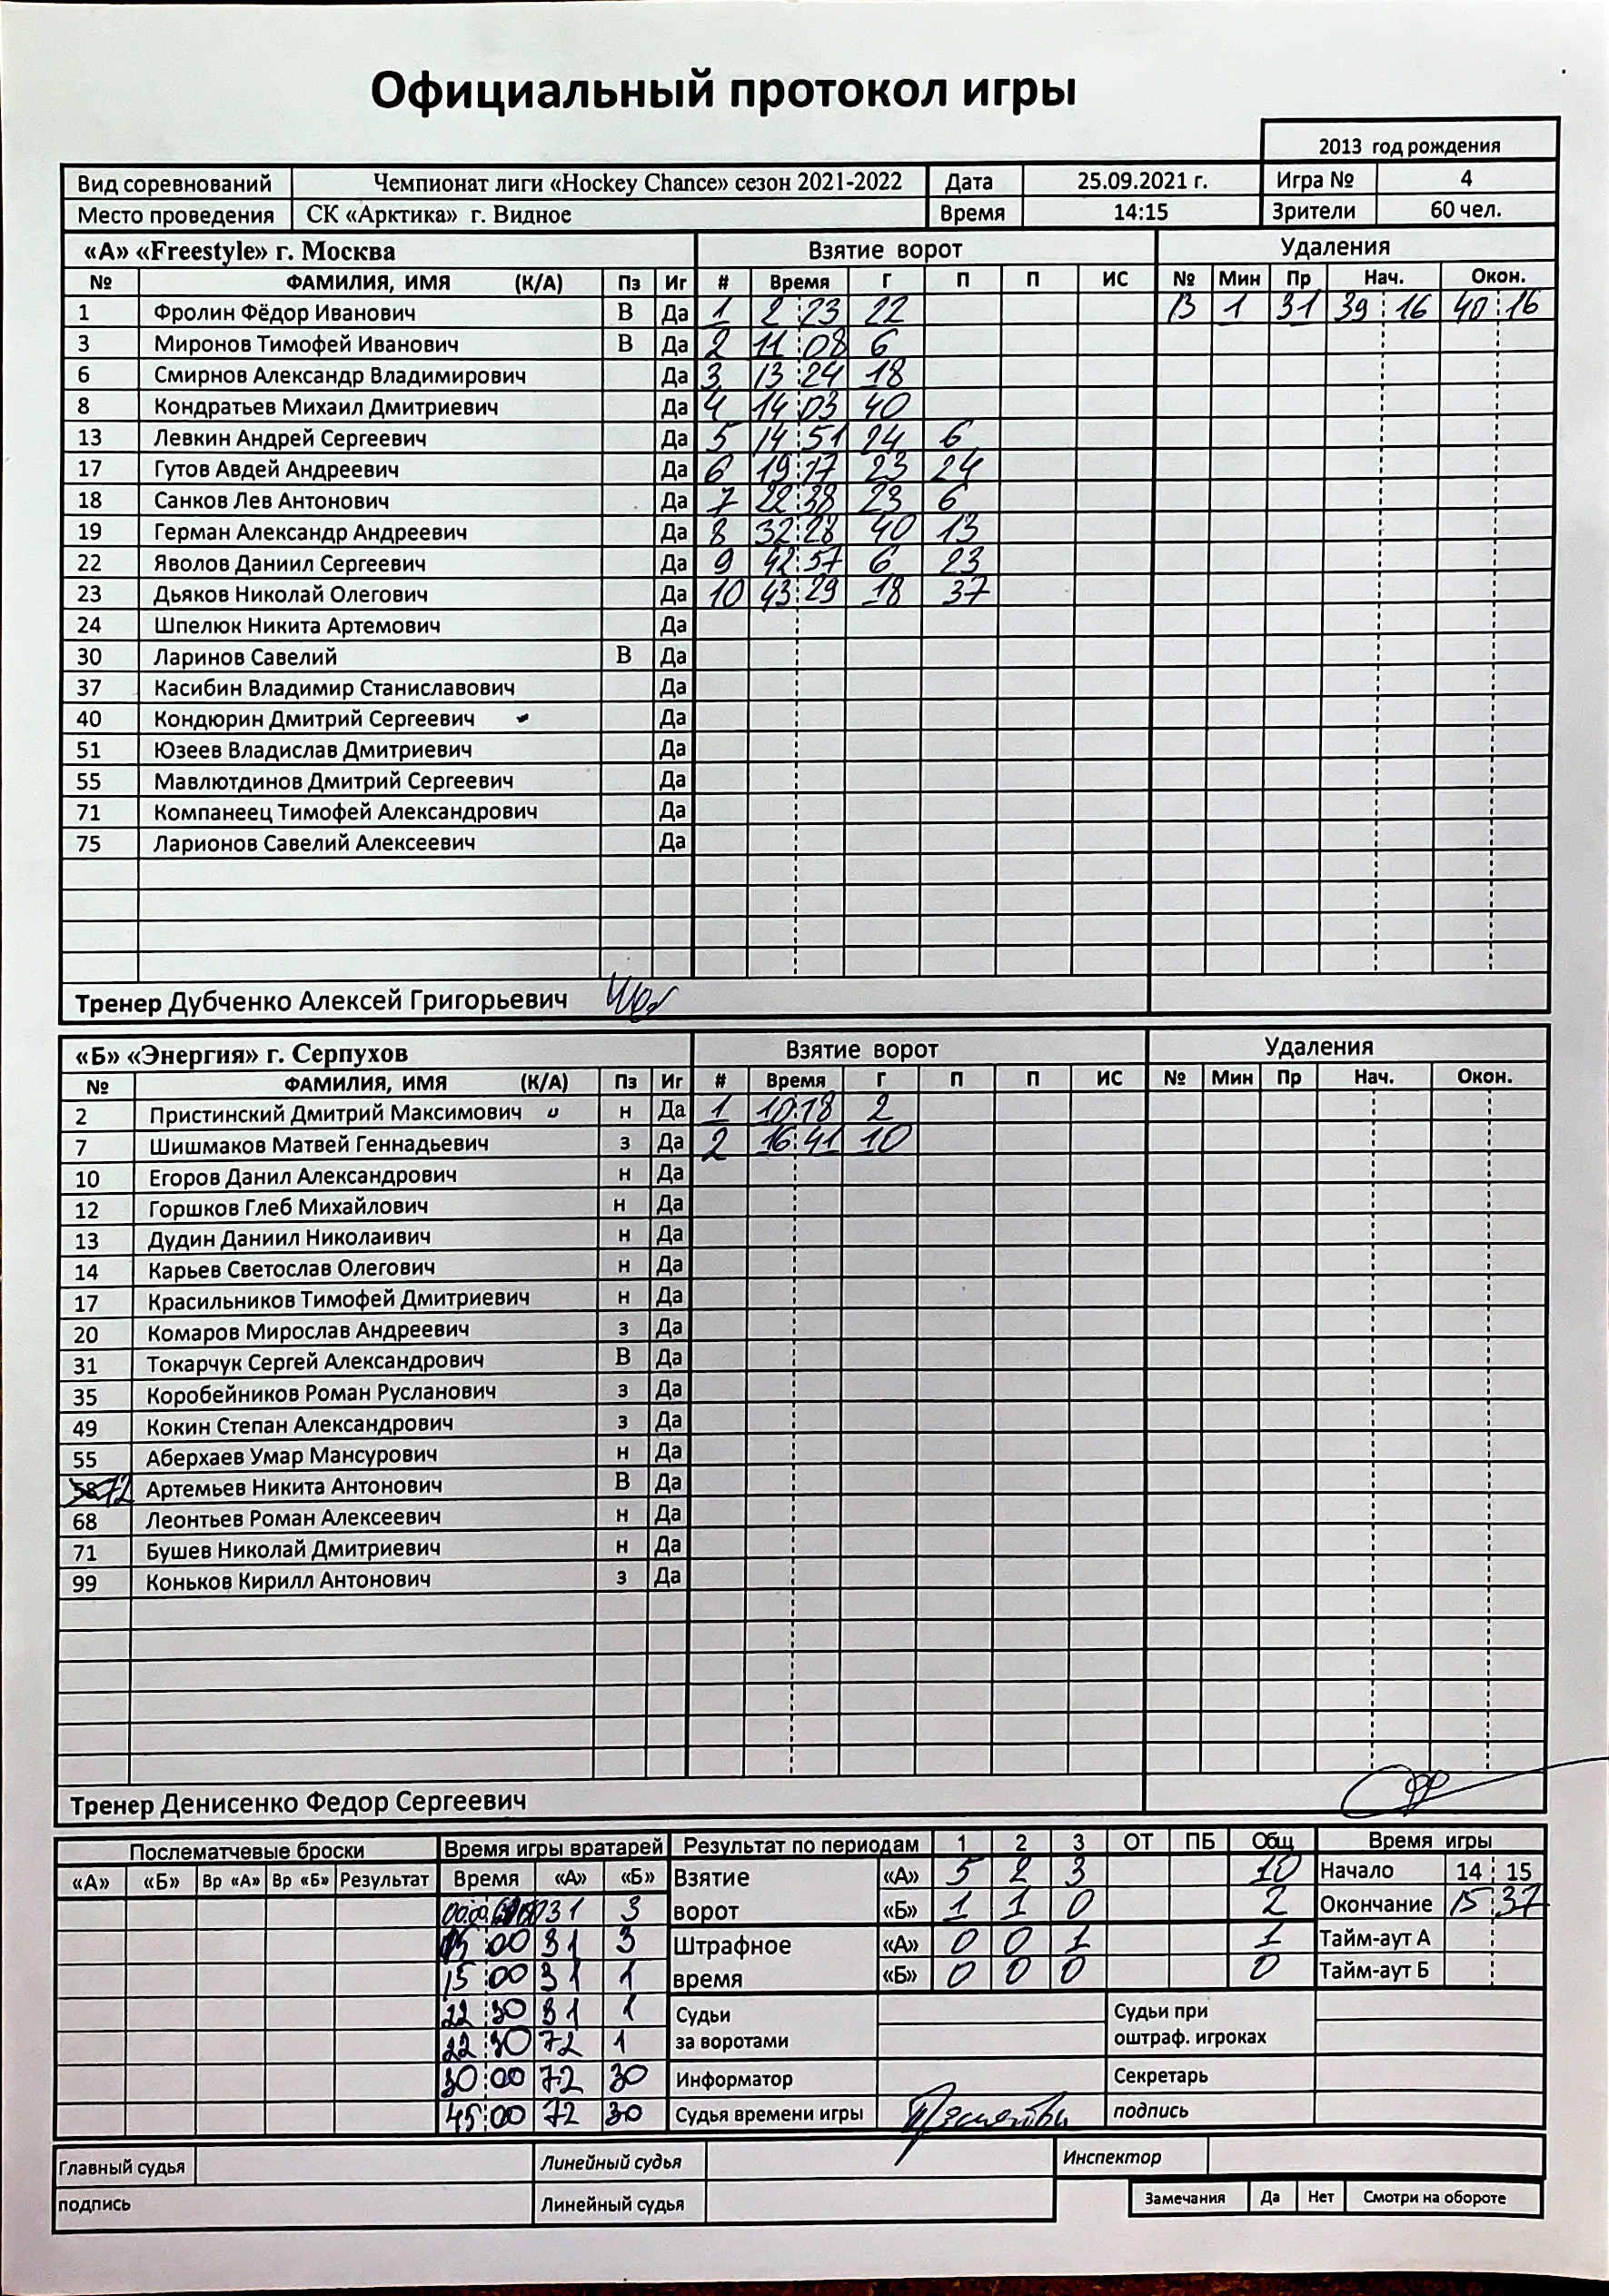 Официальный протокол игры
2013 год рождения
Вид соревнований Чемпионат лиги «Hockey Chance» сезон 2021-2022 Дата 25.09.2021 г. Игра № 4
Место проведения СК «Арктика» г. Видное Время 14:15 Зрители 60 чел.
«А» «Freestyle» г. Москва Взятие ворот Удаления
№ ФАМИЛИЯ, ИМЯ (К/А) Пз Иг # Время Г П П ИС № Мин Пр Нач. Окон.
1 Фролин Фёдор Иванович В Да 1 2 23 22 13 1 31 39 16 40 16
3 Миронов Тимофей Иванович В Да 2 11 08 6
6 Смирнов Александр Владимирович Да 3 13 24 18
8 Кондратьев Михаил Дмитриевич Да 4 14 03 40
13 Левкин Андрей Сергеевич Да 5 14 51 24 6
17 Гутов Авдей Андреевич Да 6 19 17 23 24
18 Санков Лев Антонович Да 7 22 38 23 6
19 Герман Александр Андреевич Да 8 32 28 40 13
22 Яволов Даниил Сергеевич Да 9 42 57 6 23
23 Дьяков Николай Олегович Да 10 43 29 18 37
24 Шпелюк Никита Артемович Да
30 Ларинов Савелий В Да
37 Касибин Владимир Станиславович Да
40 Кондюрин Дмитрий Сергеевич Да
51 Юзеев Владислав Дмитриевич Да
55 Мавлютдинов Дмитрий Сергеевич Да
71 Компанеец Тимофей Александрович Да
75 Ларионов Савелий Алексеевич Да
Тренер Дубченко Алексей Григорьевич
«Б» «Энергия» г. Серпухов Взятие ворот Удаления
№ ФАМИЛИЯ, ИМЯ (К/А) Пз Иг # Время Г П П ИС № Мин Пр Нач. Окон.
2 Пристинский Дмитрий Максимович н Да 1 10 18 2
7 Шишмаков Матвей Геннадьевич з Да 2 16 41 10
10 Егоров Данил Александрович н Да
12 Горшков Глеб Михайлович н Да
13 Дудин Даниил Николаивич н Да
14 Карьев Светослав Олегович н Да
17 Красильников Тимофей Дмитриевич н Да
20 Комаров Мирослав Андреевич з Да
31 Токарчук Сергей Александрович В Да
35 Коробейников Роман Русланович з Да
49 Кокин Степан Александрович з Да
55 Аберхаев Умар Мансурович н Да
72 Артемьев Никита Антонович В Да
68 Леонтьев Роман Алексеевич н Да
71 Бушев Николай Дмитриевич н Да
99 Коньков Кирилл Антонович з Да
Тренер Денисенко Федор Сергеевич
Послематчевые броски Время игры вратарей Результат по периодам 1 2 3 ОТ ПБ Общ Время игры
«А» «Б» Вр «А» Вр «Б» Результат Время «А» «Б» Взятие ворот «А» 5 2 3 10 Начало 14 15
00:00 31 3 «Б» 1 1 0 2 Окончание 15 37
15 00 31 3 Штрафное время «А» 0 0 1 1 Тайм-аут А
15 00 31 1 «Б» 0 0 0 0 Тайм-аут Б
22 30 31 1 Судьи за воротами Судьи при оштраф. игроках
22 30 72 1
30 00 72 30 Информатор Секретарь
45 00 72 30 Судья времени игры подпись
Главный судья Линейный судья Инспектор
подпись Линейный судья Замечания Да Нет Смотри на обороте